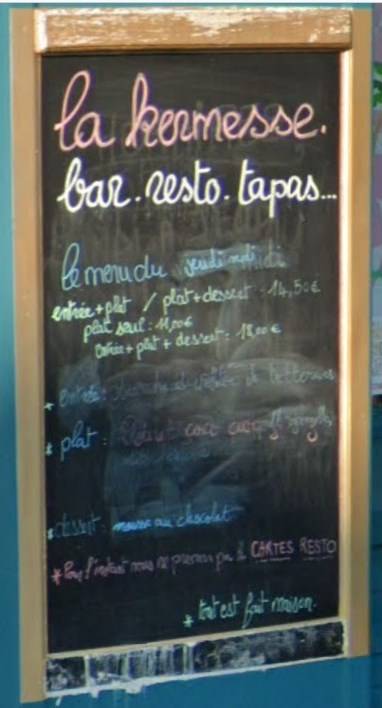 la kermesse.
bar. resto. tapas...
le menu du jeudi midi
entrée + plat / plat + dessert : 14,50 €
plat seul : 11,00 €
entrée + plat + dessert : 18,00 €
* entrée :
* plat : coco
* dessert : mousse au chocolat
* Pour l'instant nous ne prenons pas les CARTES RESTO
* tout est fait maison.